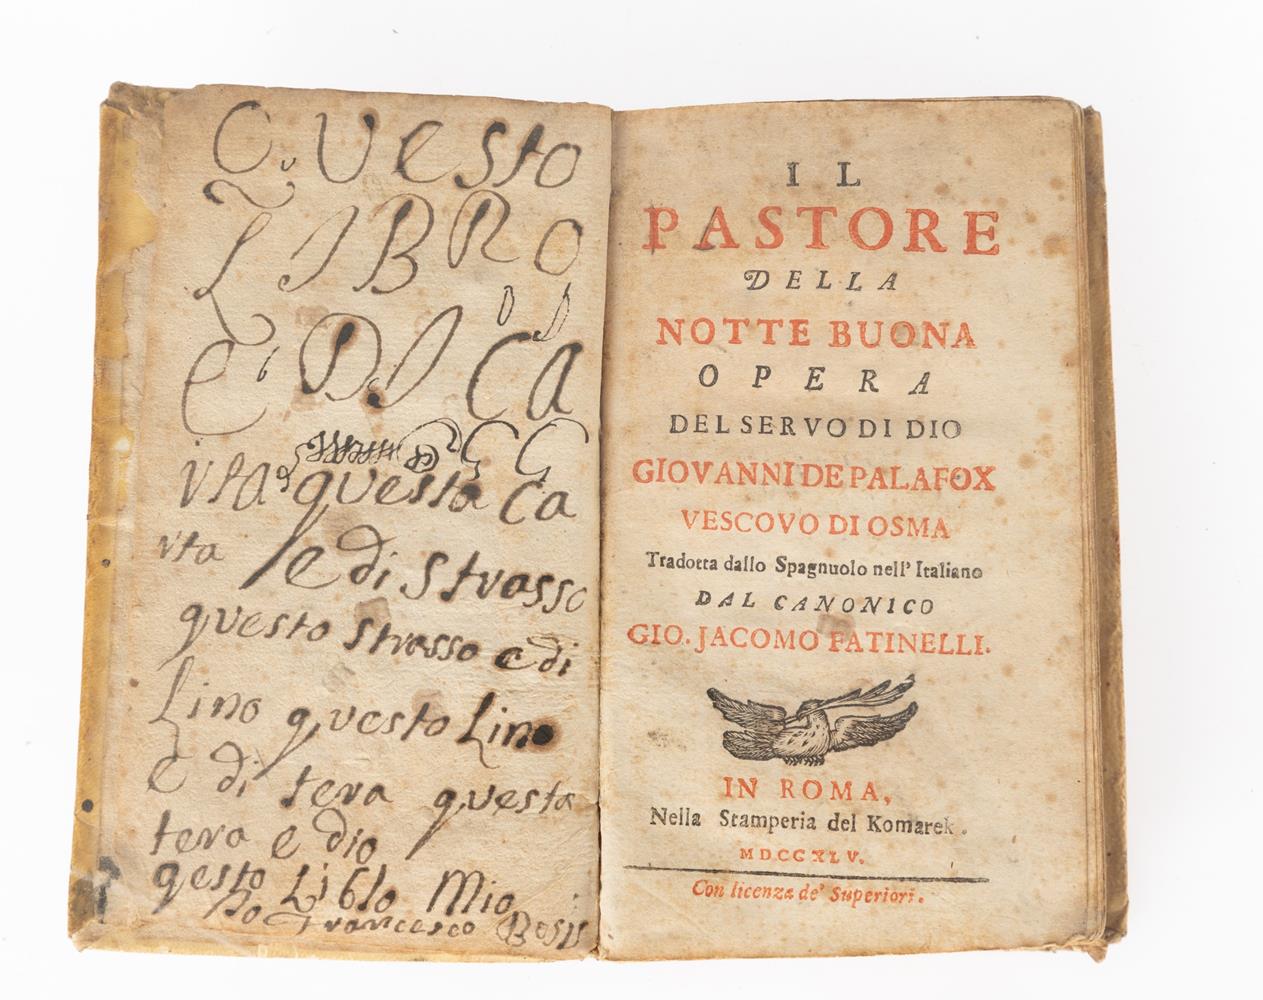 QVesto
LIBRO
E DI Ca
rta questa Ca
rta e di Strasso
questo strasso e di
Lino questo Lino
e di tera questa
tera e dio
qesto Liblo Mio
Io Francesco
IL
PASTORE
DELLA
NOTTE BUONA
OPERA
DEL SERVO DI DIO
GIOVANNI DE PALAFOX
VESCOVO DI OSMA
Tradotta dallo Spagnuolo nell' Italiano
DAL CANONICO
GIO. JACOMO FATINELLI.
IN ROMA,
Nella Stamperia del Komarek.
MDCCXLV.
Con licenza de' Superiori.